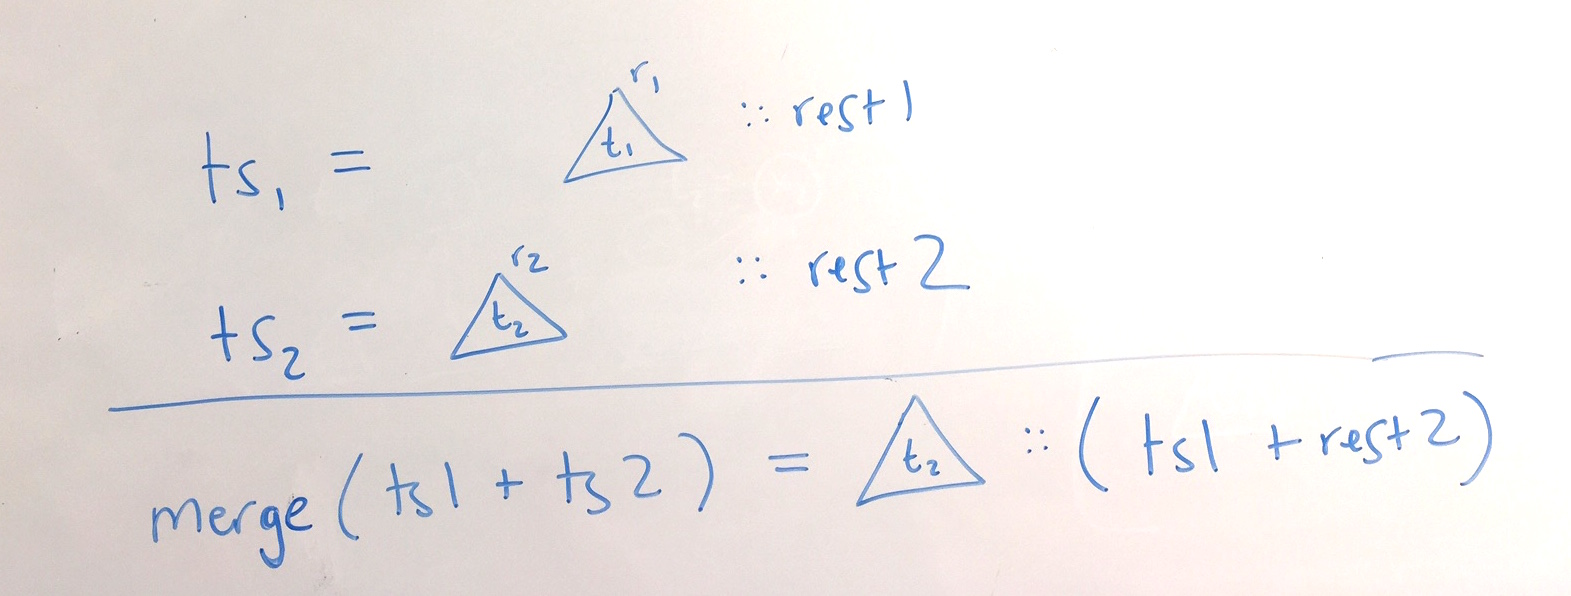 ts₁ = t₁ r₁ :: rest1
ts₂ = t₂ r₂ :: rest2
merge(ts1 + ts2) = t₂ :: (ts1 + rest2)